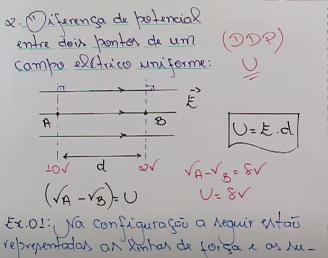 2. Diferença de potencial
entre dois pontos de um
campo elétrico uniforme:
(DDP)
U
E
A
B
U = E.d
10V
d
2V
(VA - VB) = U
VA - VB = 8V
U = 8V
Ex.01: Na configuração a seguir estão
representadas as linhas de força e as su-